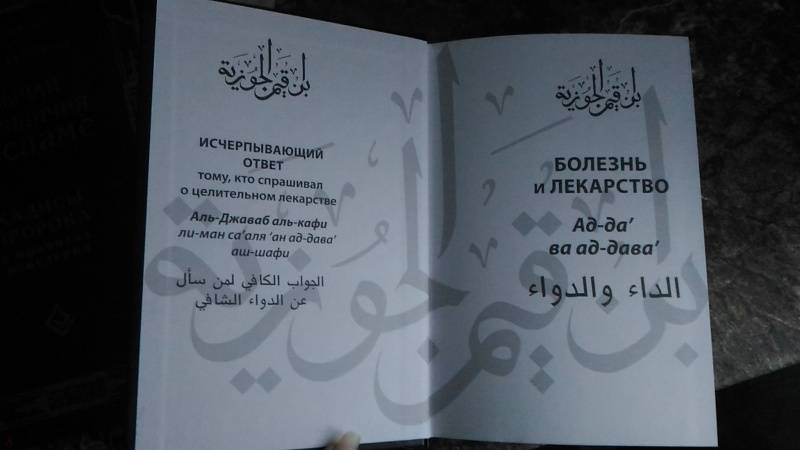 ابن قيم الجوزية
ИСЧЕРПЫВАЮЩИЙ
ОТВЕТ
тому, кто спрашивал
о целительном лекарстве
Аль-Джаваб аль-кафи
ли-ман са’аля ‘ан ад-дава’
аш-шафи
الجواب الكافي لمن سأل
عن الدواء الشافي
ابن قيم الجوزية
БОЛЕЗНЬ
и ЛЕКАРСТВО
Ад-да’
ва ад-дава’
الداء والدواء
ابن قيم الجوزية